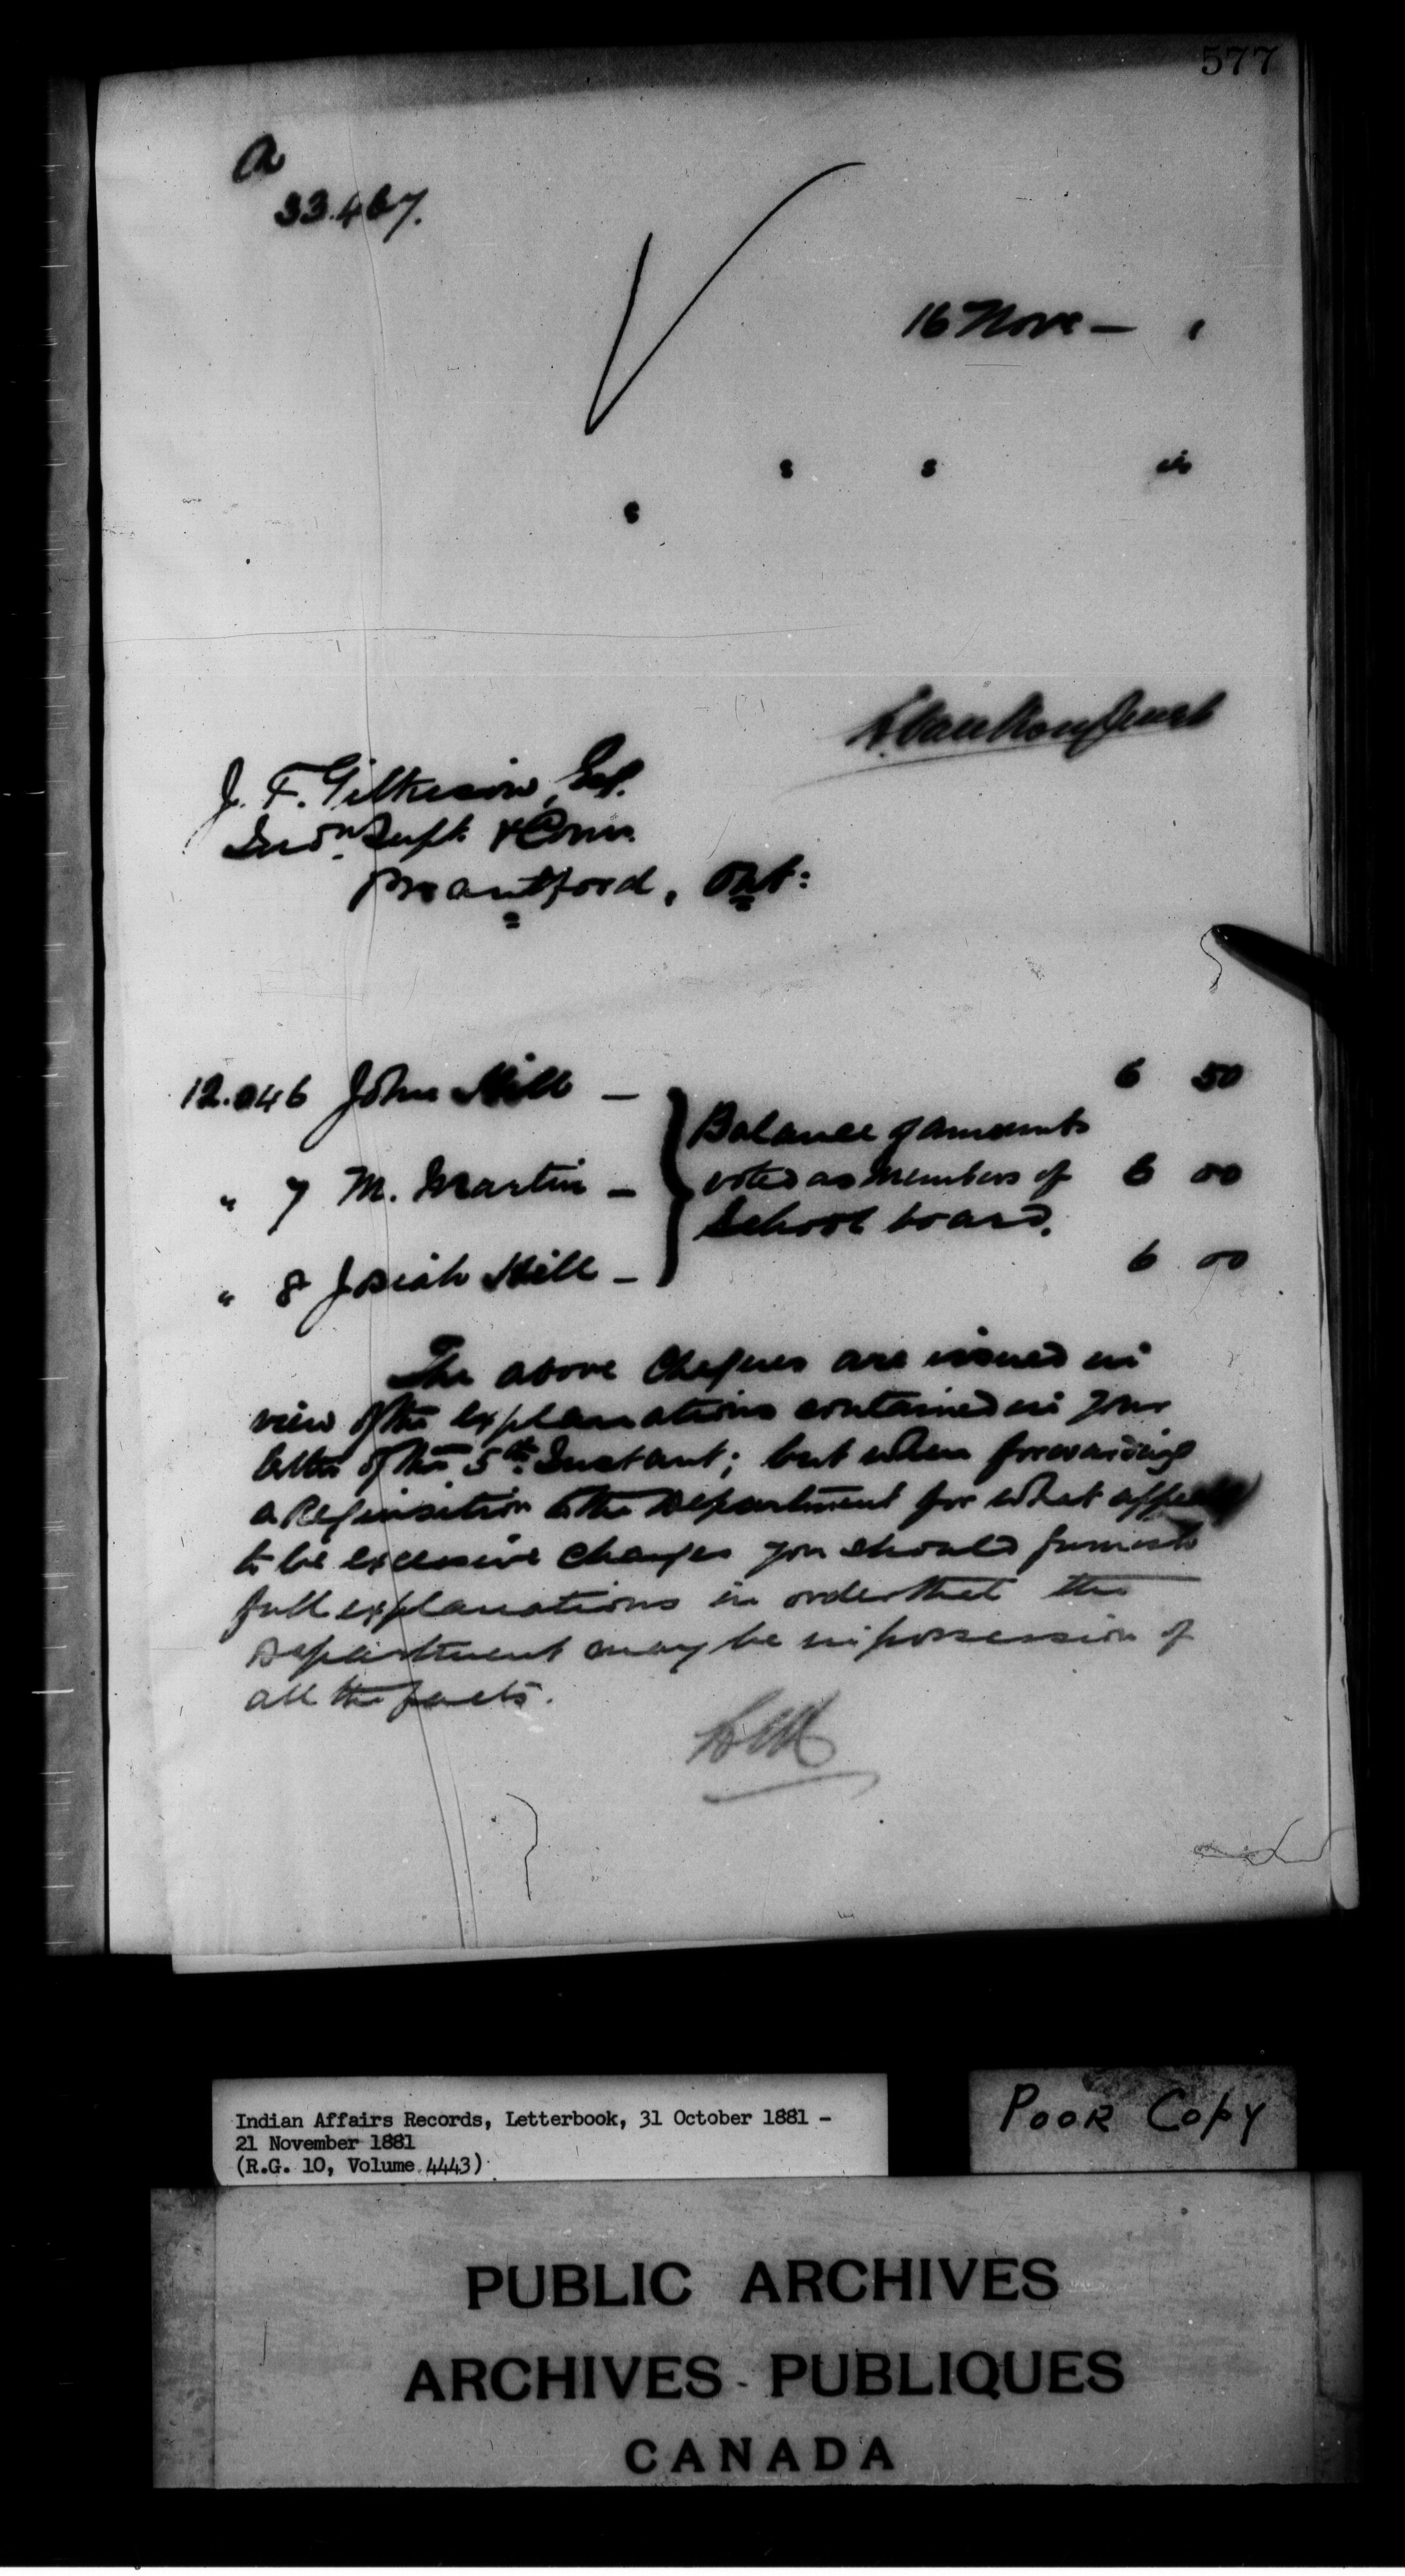 577
A
33.467.
16 Novr — 1
J. T. Gilkison, Esq.
Indn. Supt. & Comr.
Brantford, Ont:
12.046 John Hill — 6 50
Balance of amounts
" 7 M. Martin — voted as members of 6 00
School board.
" 8 Josiah Hill — 6 00
The above Cheques are issued in
view of the explanations contained in your
letter of the 5th Instant; but when forwarding
a Requisition to the Department for what appears
to be excessive charges you should furnish
full explanations in order that the
Department may be in possession of
all the facts.
Indian Affairs Records, Letterbook, 31 October 1881 -
21 November 1881
(R.G. 10, Volume 4443)
POOR COPY
PUBLIC ARCHIVES
ARCHIVES - PUBLIQUES
CANADA